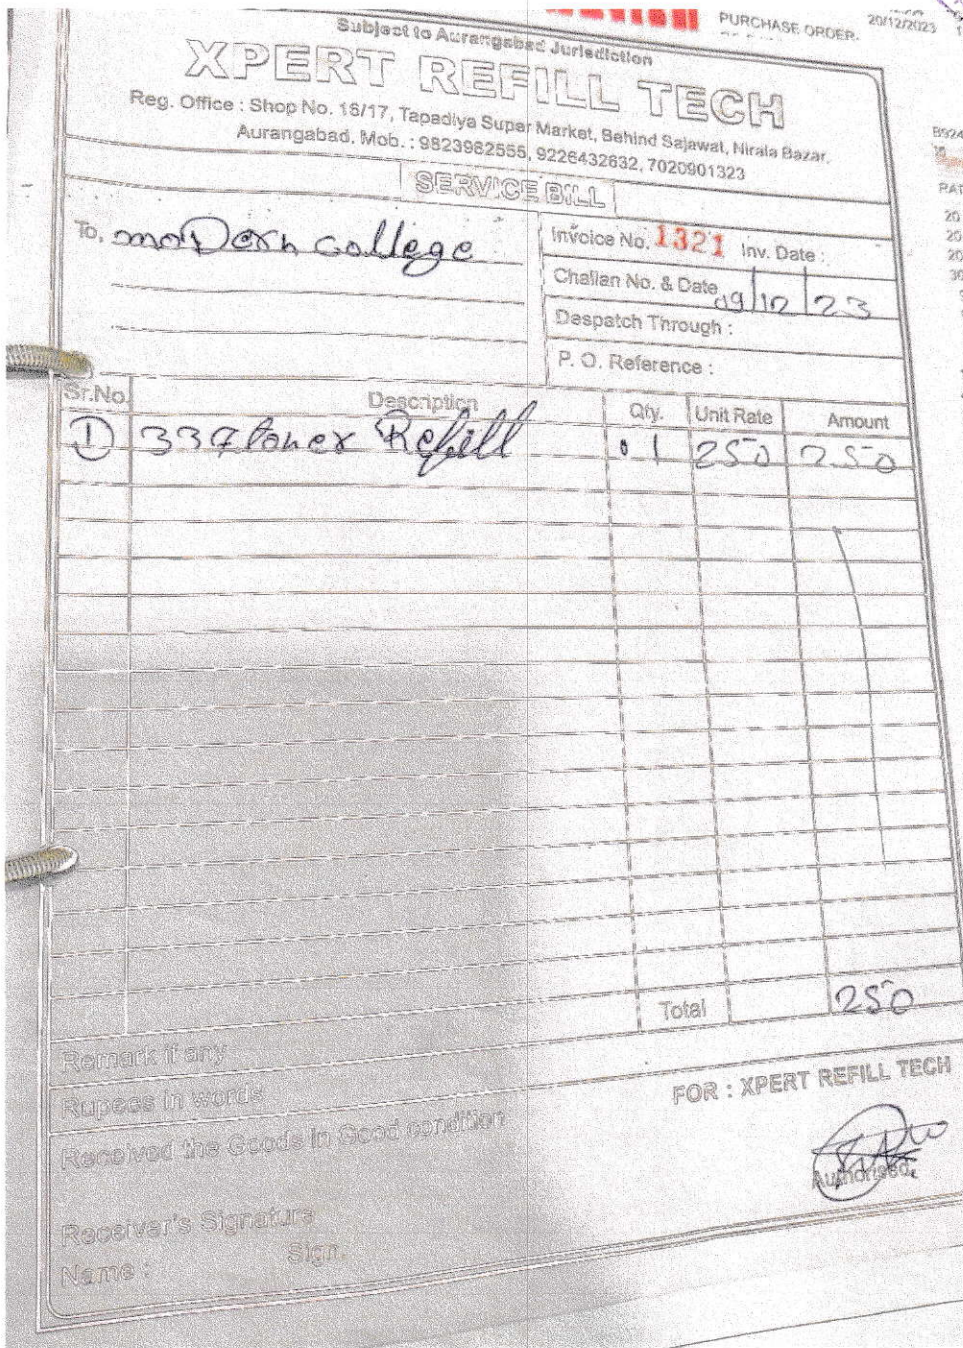 PURCHASE ORDER.
20/12/2023
Subject to Aurangabad Jurisdiction
XPERT REFILL TECH
Reg. Office : Shop No. 16/17, Tapadiya Super Market, Behind Sajawat, Nirala Bazar,
Aurangabad. Mob. : 9823982555, 9226432632, 7020901323
SERVICE BILL
To, moDern college
Invoice No. 1321 Inv. Date :
Challan No. & Date 09/12/23
Despatch Through :
P. O. Reference :
Sr.No. Description Qty. Unit Rate Amount
1 337 toner Refill 01 250 250
Total 250
Remark if any
Rupees in words
Received the Goods in Good condition
FOR : XPERT REFILL TECH
Authorised.
Receiver's Signature
Name : Sign.